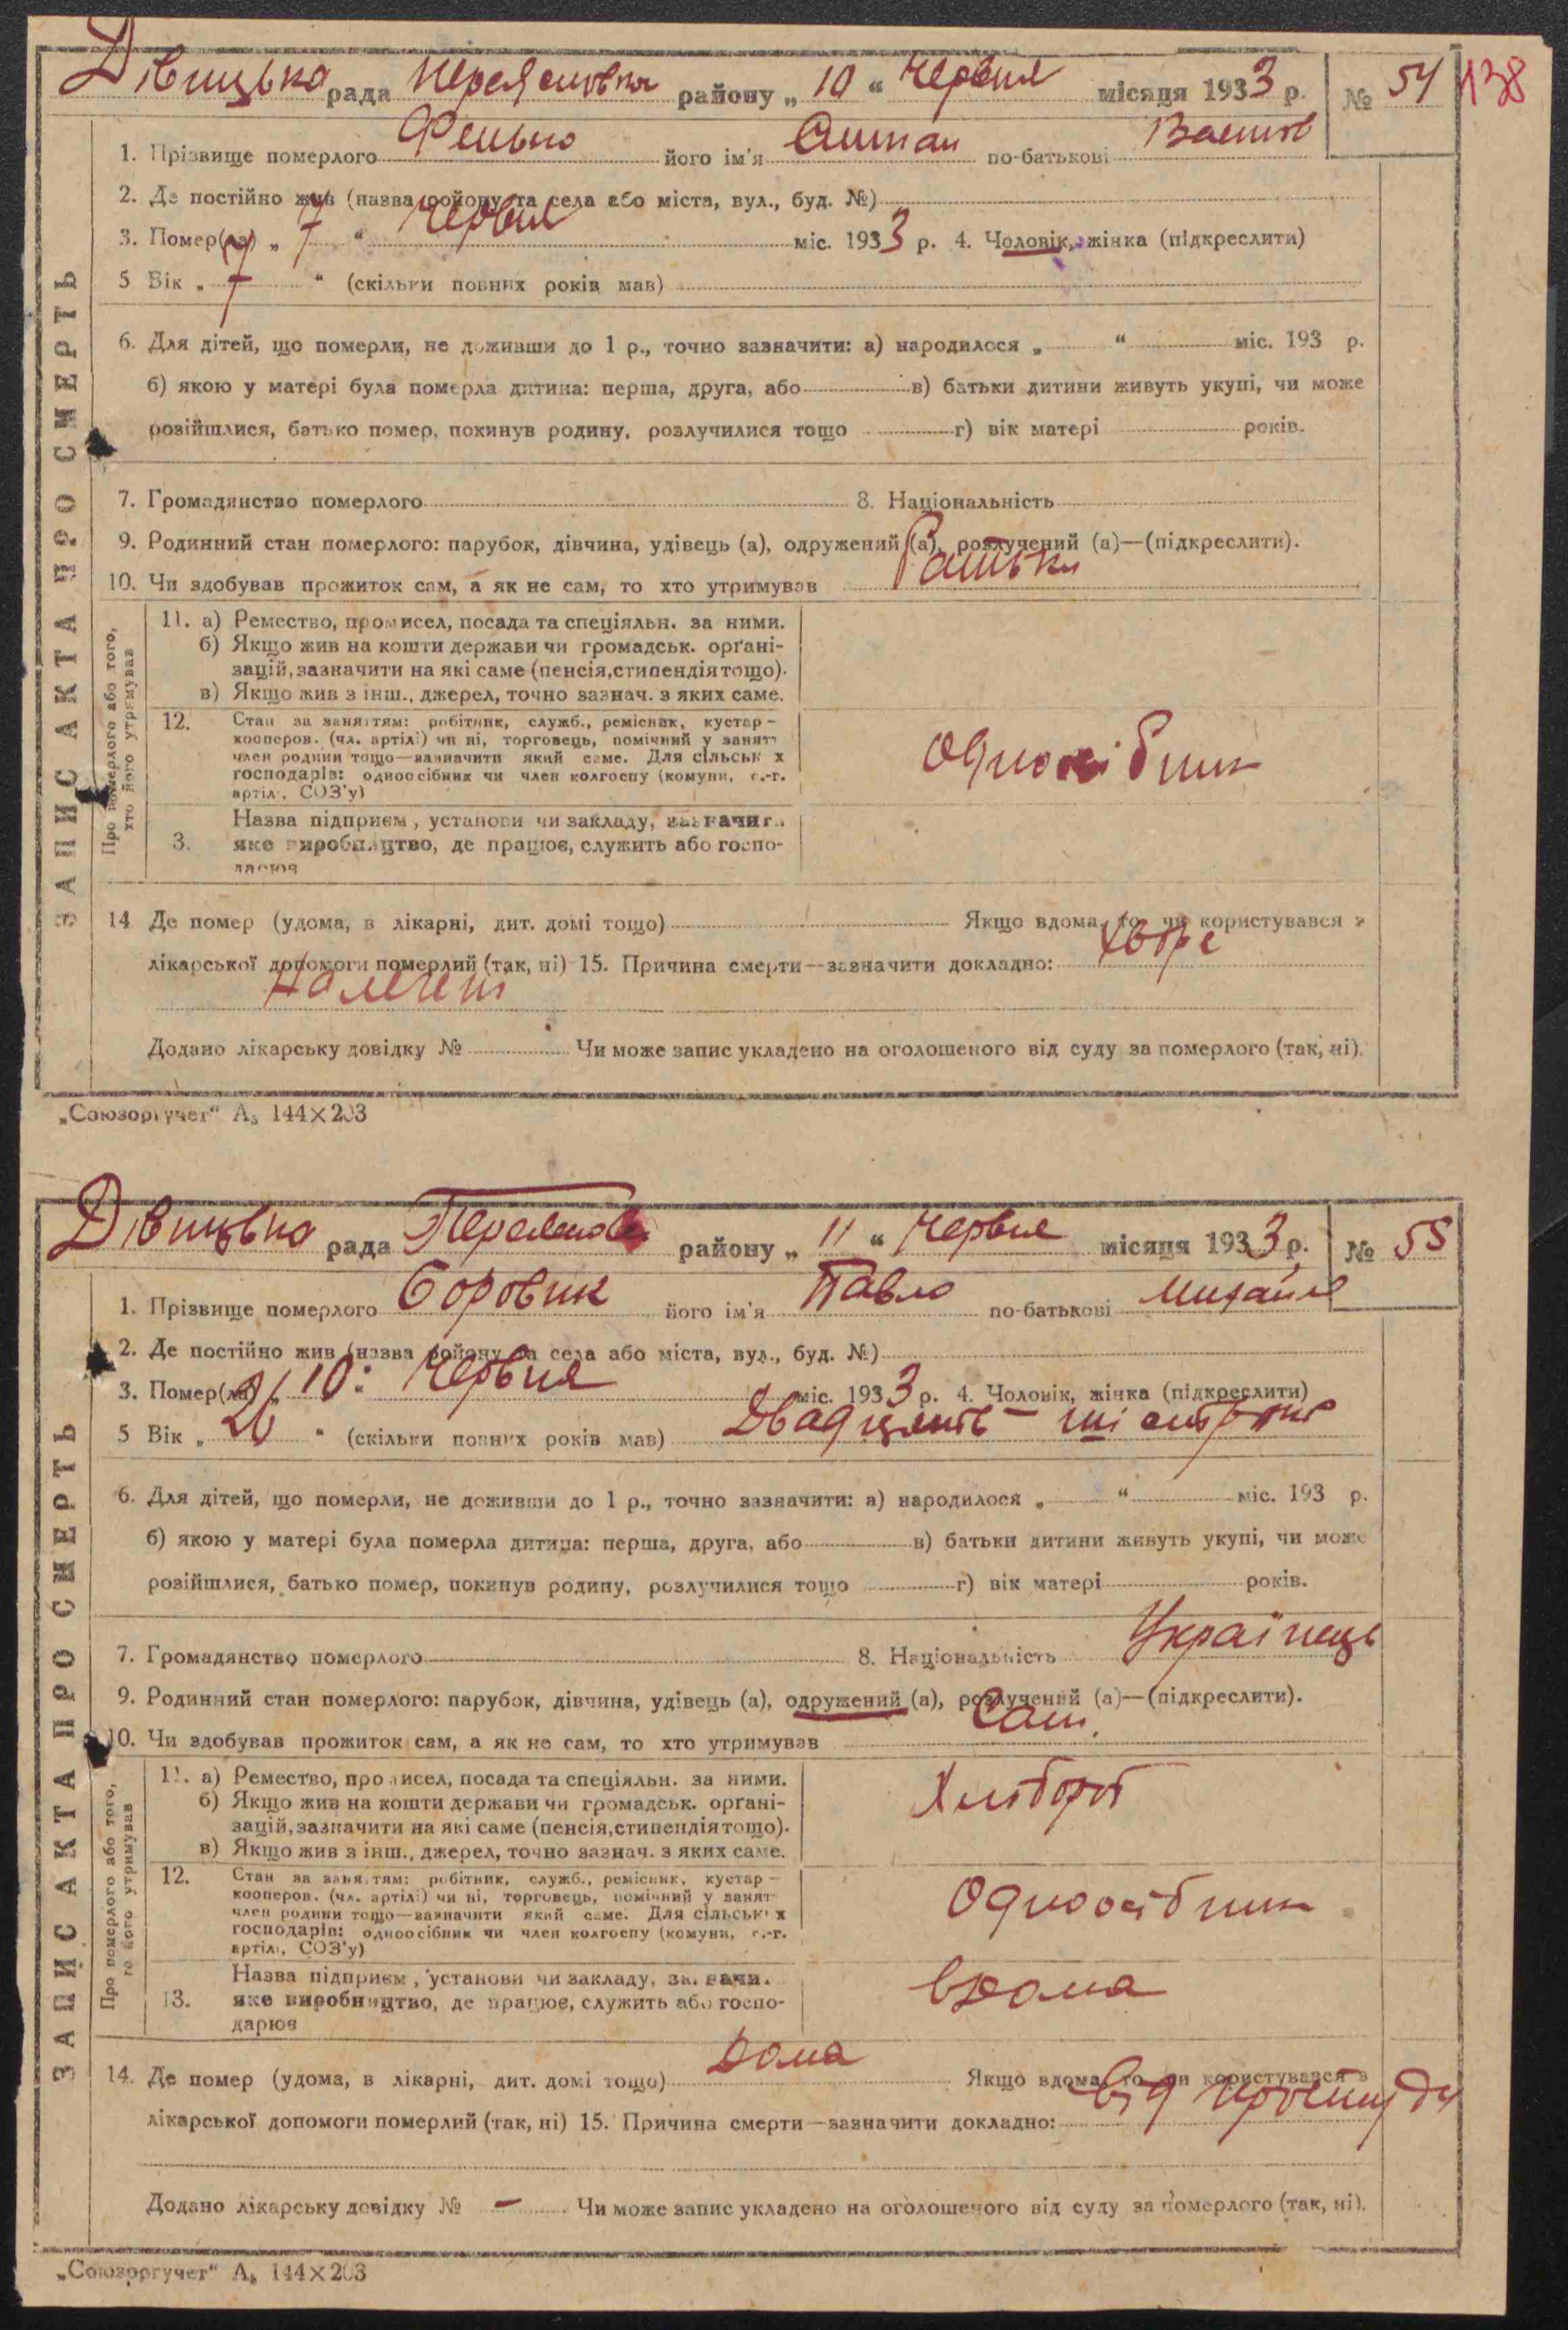 Дівицько рада Переяславськ району „ 10 “ Червня місяця 1933 р. № 54 138
1. Прізвище померлого його ім'я по-батькові
2. Де постійно жив (назва району та села або міста, вул., буд. №)
3. Помер(ла) „ 7 “ Червня міс. 1933 р. 4. Чоловік, жінка (підкреслити)
5 Вік „ 7 “ (скільки повних років мав)
6. Для дітей, що померли, не доживши до 1 р., точно зазначити: а) народилося „ “ міс. 193 р.
б) якою у матері була померла дитина: перша, друга, або в) батьки дитини живуть укупі, чи може
розійшлися, батько помер, покинув родину, розлучилися тощо г) вік матері років.
7. Громадянство померлого 8. Національність
9. Родинний стан померлого: парубок, дівчина, удівець (а), одружений (а), розлучений (а)—(підкреслити).
10. Чи здобував прожиток сам, а як не сам, то хто утримував
ЗАПИС АКТА ПРО СМЕРТЬ
Про померлого або того,
хто його утримував
11. а) Ремество, промисел, посада та спеціяльн. за ними.
б) Якщо жив на кошти держави чи громадськ. орґані-
зацій, зазначити на які саме (пенсія, стипендія тощо).
в) Якщо жив з інш., джерел, точно зазнач. з яких саме.
12. Стан за заняттям: робітник, служб., ремісник, кустар-
кооперов. (чл. артілі) чи ні, торговець, помічний у занят
член родини тощо—зазначити який саме. Для сільськ х
господарів: одноосібник чи член колгоспу (комуни, с.-г.
артілі, СОЗ'у)
Одноосібник
Назва підприєм, установи чи закладу, зазначити
3. яке виробництво, де працює, служить або госпо-
дарює
14 Де помер (удома, в лікарні, дит. домі тощо) Якщо вдома, то чи користувався з
лікарської допомоги померлий (так, ні) 15. Причина смерти—зазначити докладно:
Додано лікарську довідку № Чи може запис укладено на оголошеного від суду за померлого (так, ні).
„Союзоргучет“ А₅ 144×203
Дівицько рада району „ 11 “ Червня місяця 1933 р. № 55
1. Прізвище померлого Боровик його ім'я Павло по-батькові Михайл
2. Де постійно жив (назва району та села або міста, вул., буд. №)
3. Помер(ла) „ 10 “ Червня міс. 1933 р. 4. Чоловік, жінка (підкреслити)
5 Вік „ 26 “ (скільки повних років мав) Двадцять –
6. Для дітей, що померли, не доживши до 1 р., точно зазначити: а) народилося „ “ міс. 193 р.
б) якою у матері була померла дитина: перша, друга, або в) батьки дитини живуть укупі, чи може
розійшлися, батько помер, покинув родину, розлучилися тощо г) вік матері років.
7. Громадянство померлого 8. Національність Українець
9. Родинний стан померлого: парубок, дівчина, удівець (а), одружений (а), розлучений (а)—(підкреслити).
10. Чи здобував прожиток сам, а як не сам, то хто утримував Сам.
ЗАПИС АКТА ПРО СМЕРТЬ
Про померлого або того,
хто його утримував
11. а) Ремество, промисел, посада та спеціяльн. за ними.
б) Якщо жив на кошти держави чи громадськ. орґані-
зацій, зазначити на які саме (пенсія, стипендія тощо).
в) Якщо жив з інш., джерел, точно зазнач. з яких саме.
Хлібороб
12. Стан за заняттям: робітник, служб., ремісник, кустар-
кооперов. (чл. артілі) чи ні, торговець, помічний у занят
член родини тощо—зазначити який саме. Для сільськ х
господарів: одноосібник чи член колгоспу (комуни, с.-г.
артілі, СОЗ'у)
Одноосібник
Назва підприєм, установи чи закладу, зазначи.
13. яке виробництво, де працює, служить або госпо-
дарює
вдома
14. Де помер (удома, в лікарні, дит. домі тощо) Дома Якщо вдома, то чи користувався з
лікарської допомоги померлий (так, ні) 15. Причина смерти—зазначити докладно: Від простуди
Додано лікарську довідку № – Чи може запис укладено на оголошеного від суду за померлого (так, ні).
„Союзоргучет“ А₅ 144×203